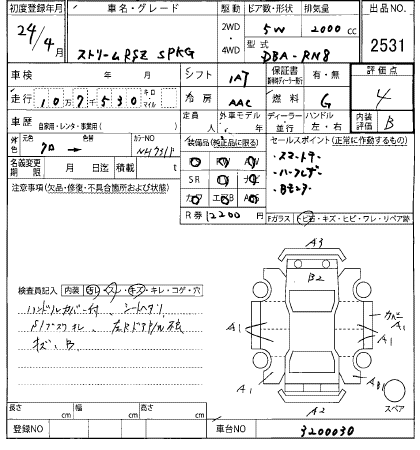 初度登録年月 車名・グレード 駆動 ドア数・形状 排気量 出品NO.
24/4月 ストリームRSZ SPKG 2WD・4WD 5W 2000cc 2531
型式 DBA-RN8
車検 年 月 シフト IAT 保証書 有・無 評価点 4
走行 107530 キロ マイル 冷房 AAC 燃料 G 内装評価 B
車歴 自家用・レンタ・事業用( ) 定員 人 外車モデル 年 ディーラー・並行 ハンドル 左・右
外色 元色 クロ → 色替 カラーNO NH731P 装備品(純正品に限る) セールスポイント(正常に作動するもの)
・スマートキー
・ハーフレザー
・Bモニター
名義変更期限 月 日迄 積載 t
SR ナビ
R券 12200円
注意事項(欠品・修復・不具合箇所および状態)
Fガラス (トビ石・キズ・ヒビ・ワレ・リペア跡)
検査員記入 内装 (汚レ・スレ・キズ・キレ・コゲ・穴)
ハンドルカバー付、シートヘタリ
キズ、B
A3
B2
A1
A1
A1
A1
A1
A1
A2
スペア
長さ cm 幅 cm 高さ cm
登録NO 車台NO 3200030